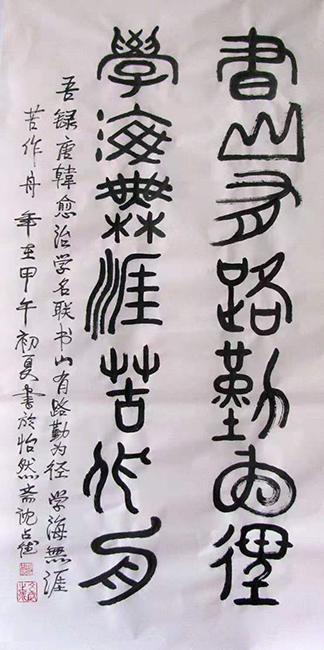 書山有路勤為徑
學海無涯苦作舟
吾録唐韓愈治学名联书山有路勤为径 学海無涯
苦作舟 年至甲午初夏書於怡然斋沈占